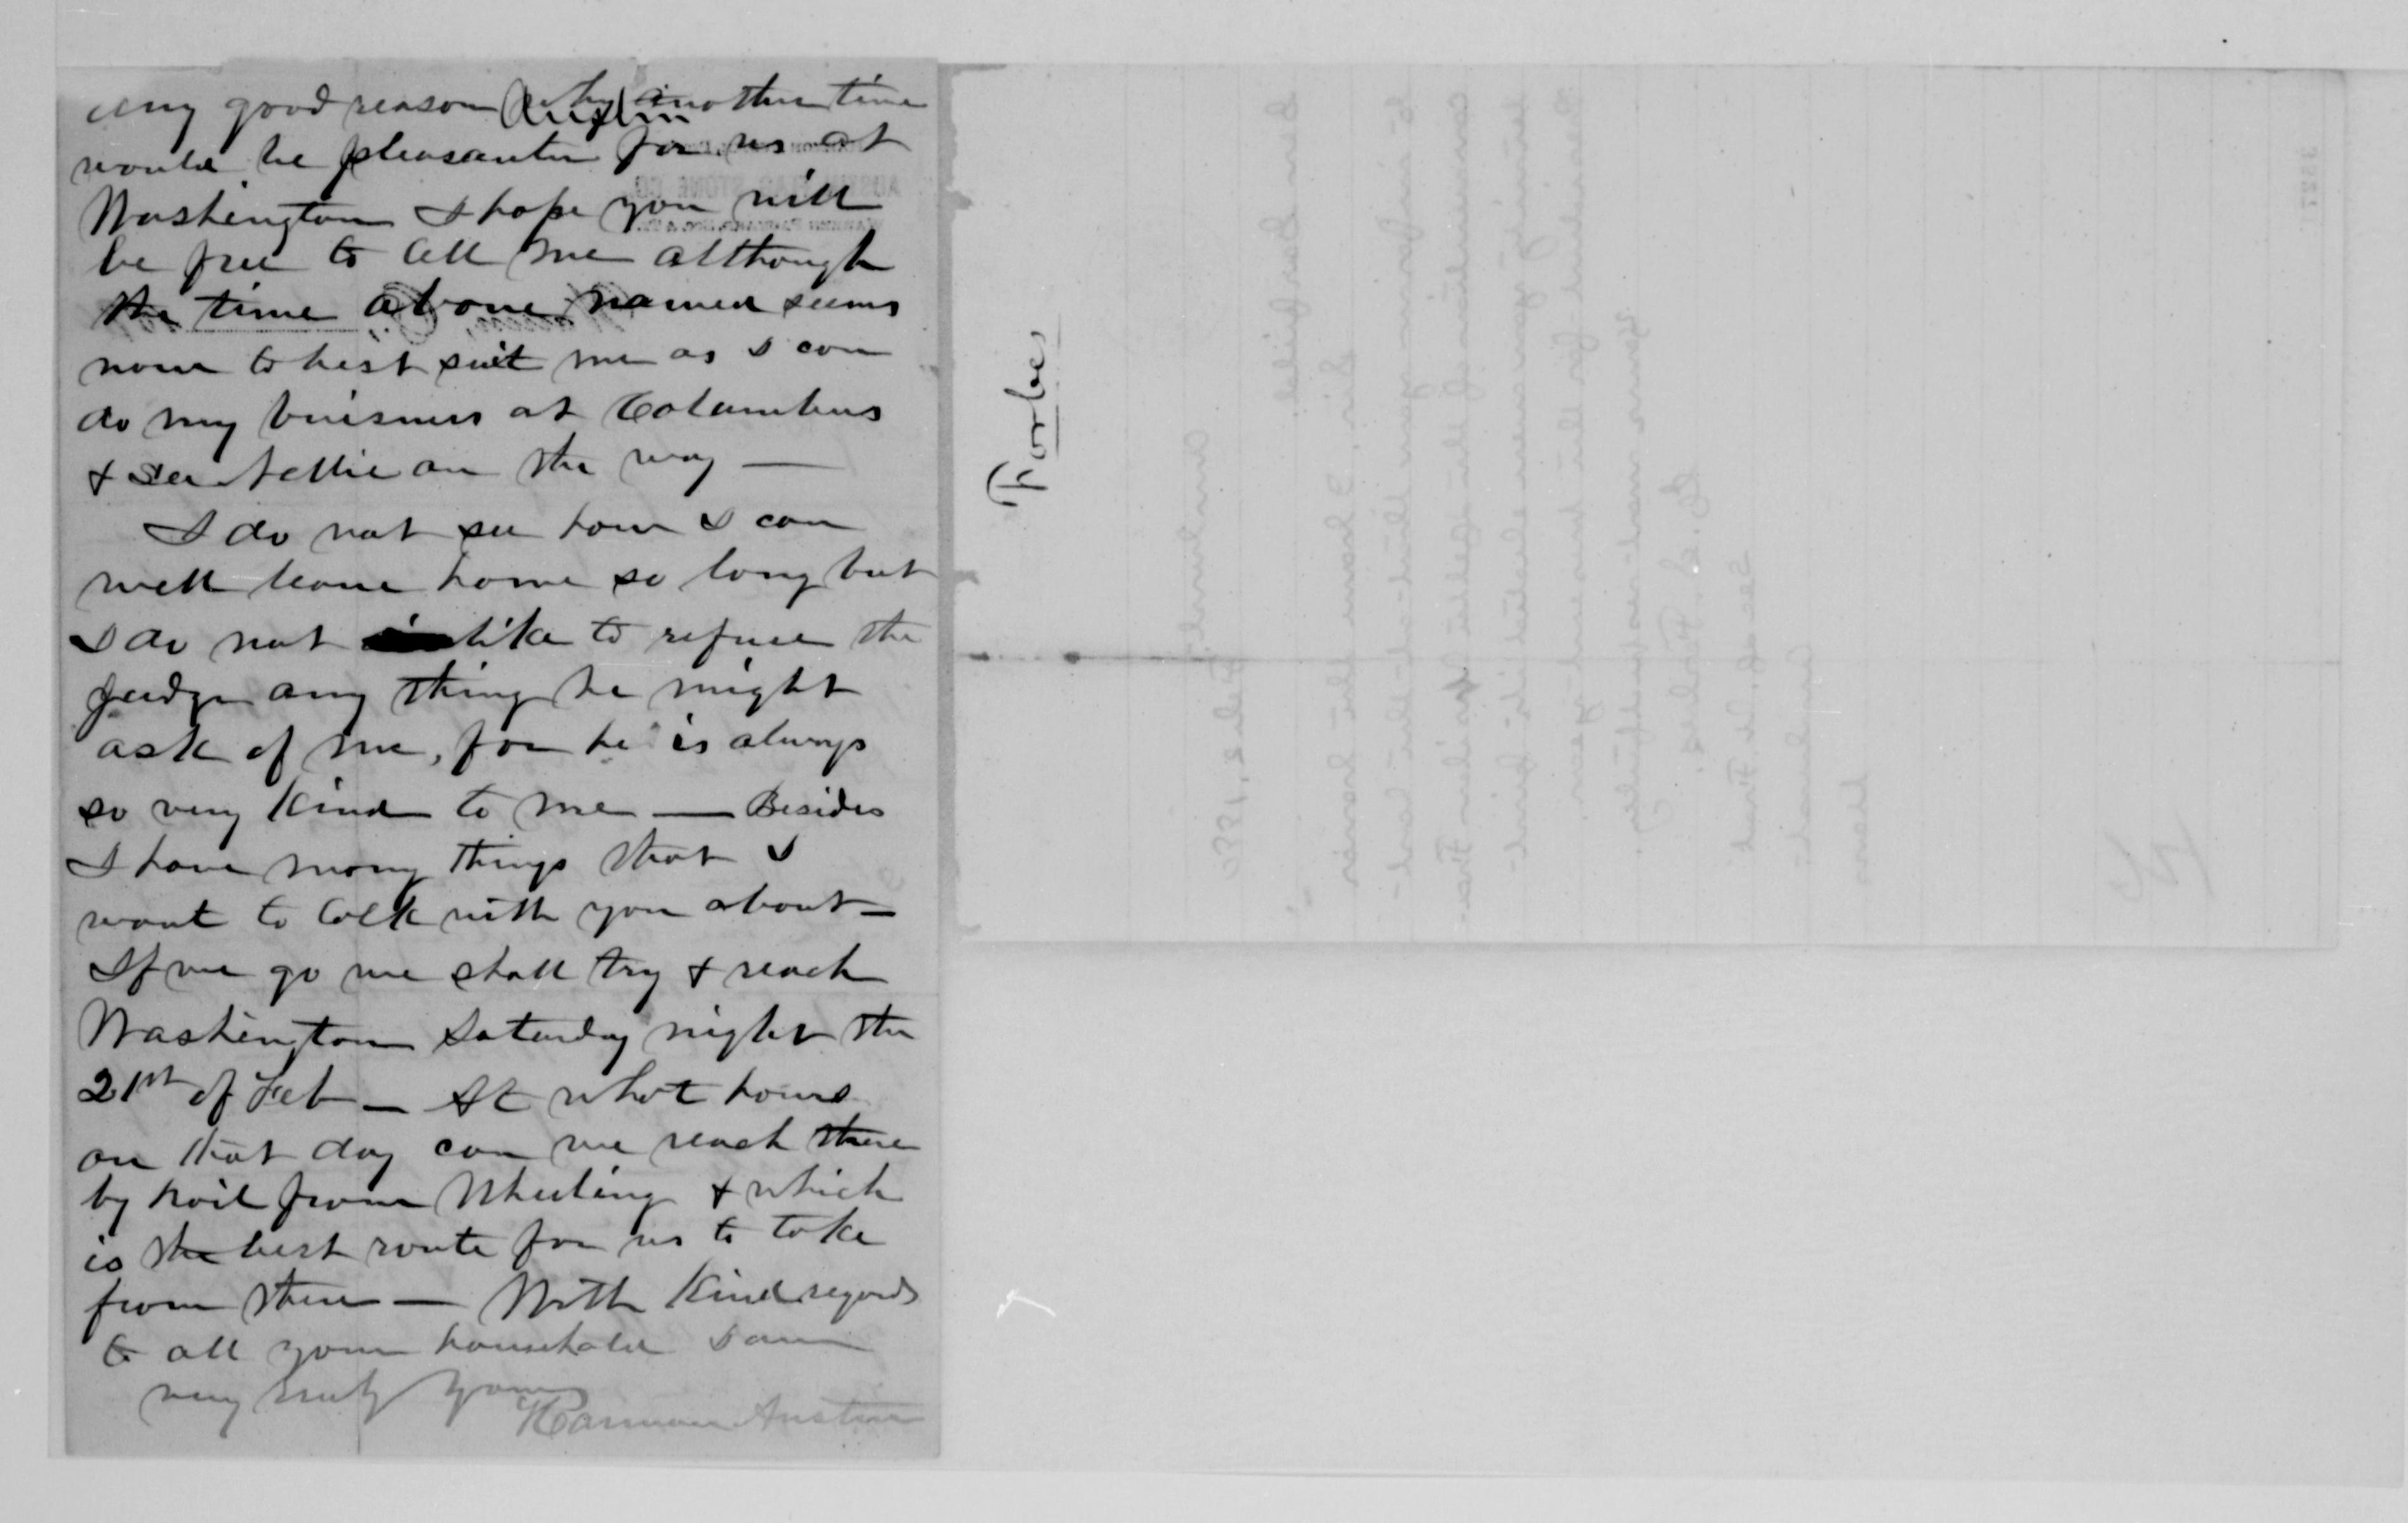 any good reason why another time
Austin
would be pleasanter for us at
Washington I hope you will
be free to tell me although
the time above named seems
now to best suit me as I can
do my buisness at Columbus
& see Nellie on the way —
I do not see how I can
well leave home so long but
I do not like to refuse the
Judge any thing he might
ask of me, for he is always
so very kind to me — Besides
I have many things that I
want to talk with you about —
If we go we shall try & reach
Washington Saturday night the
21st of Feb — At what hours
on that day can we reach there
by Rail from Wheeling & which
is the best route for us to take
from there — With Kind regards
to all your household I am
very truly yours
Harmon Austin
Forbes